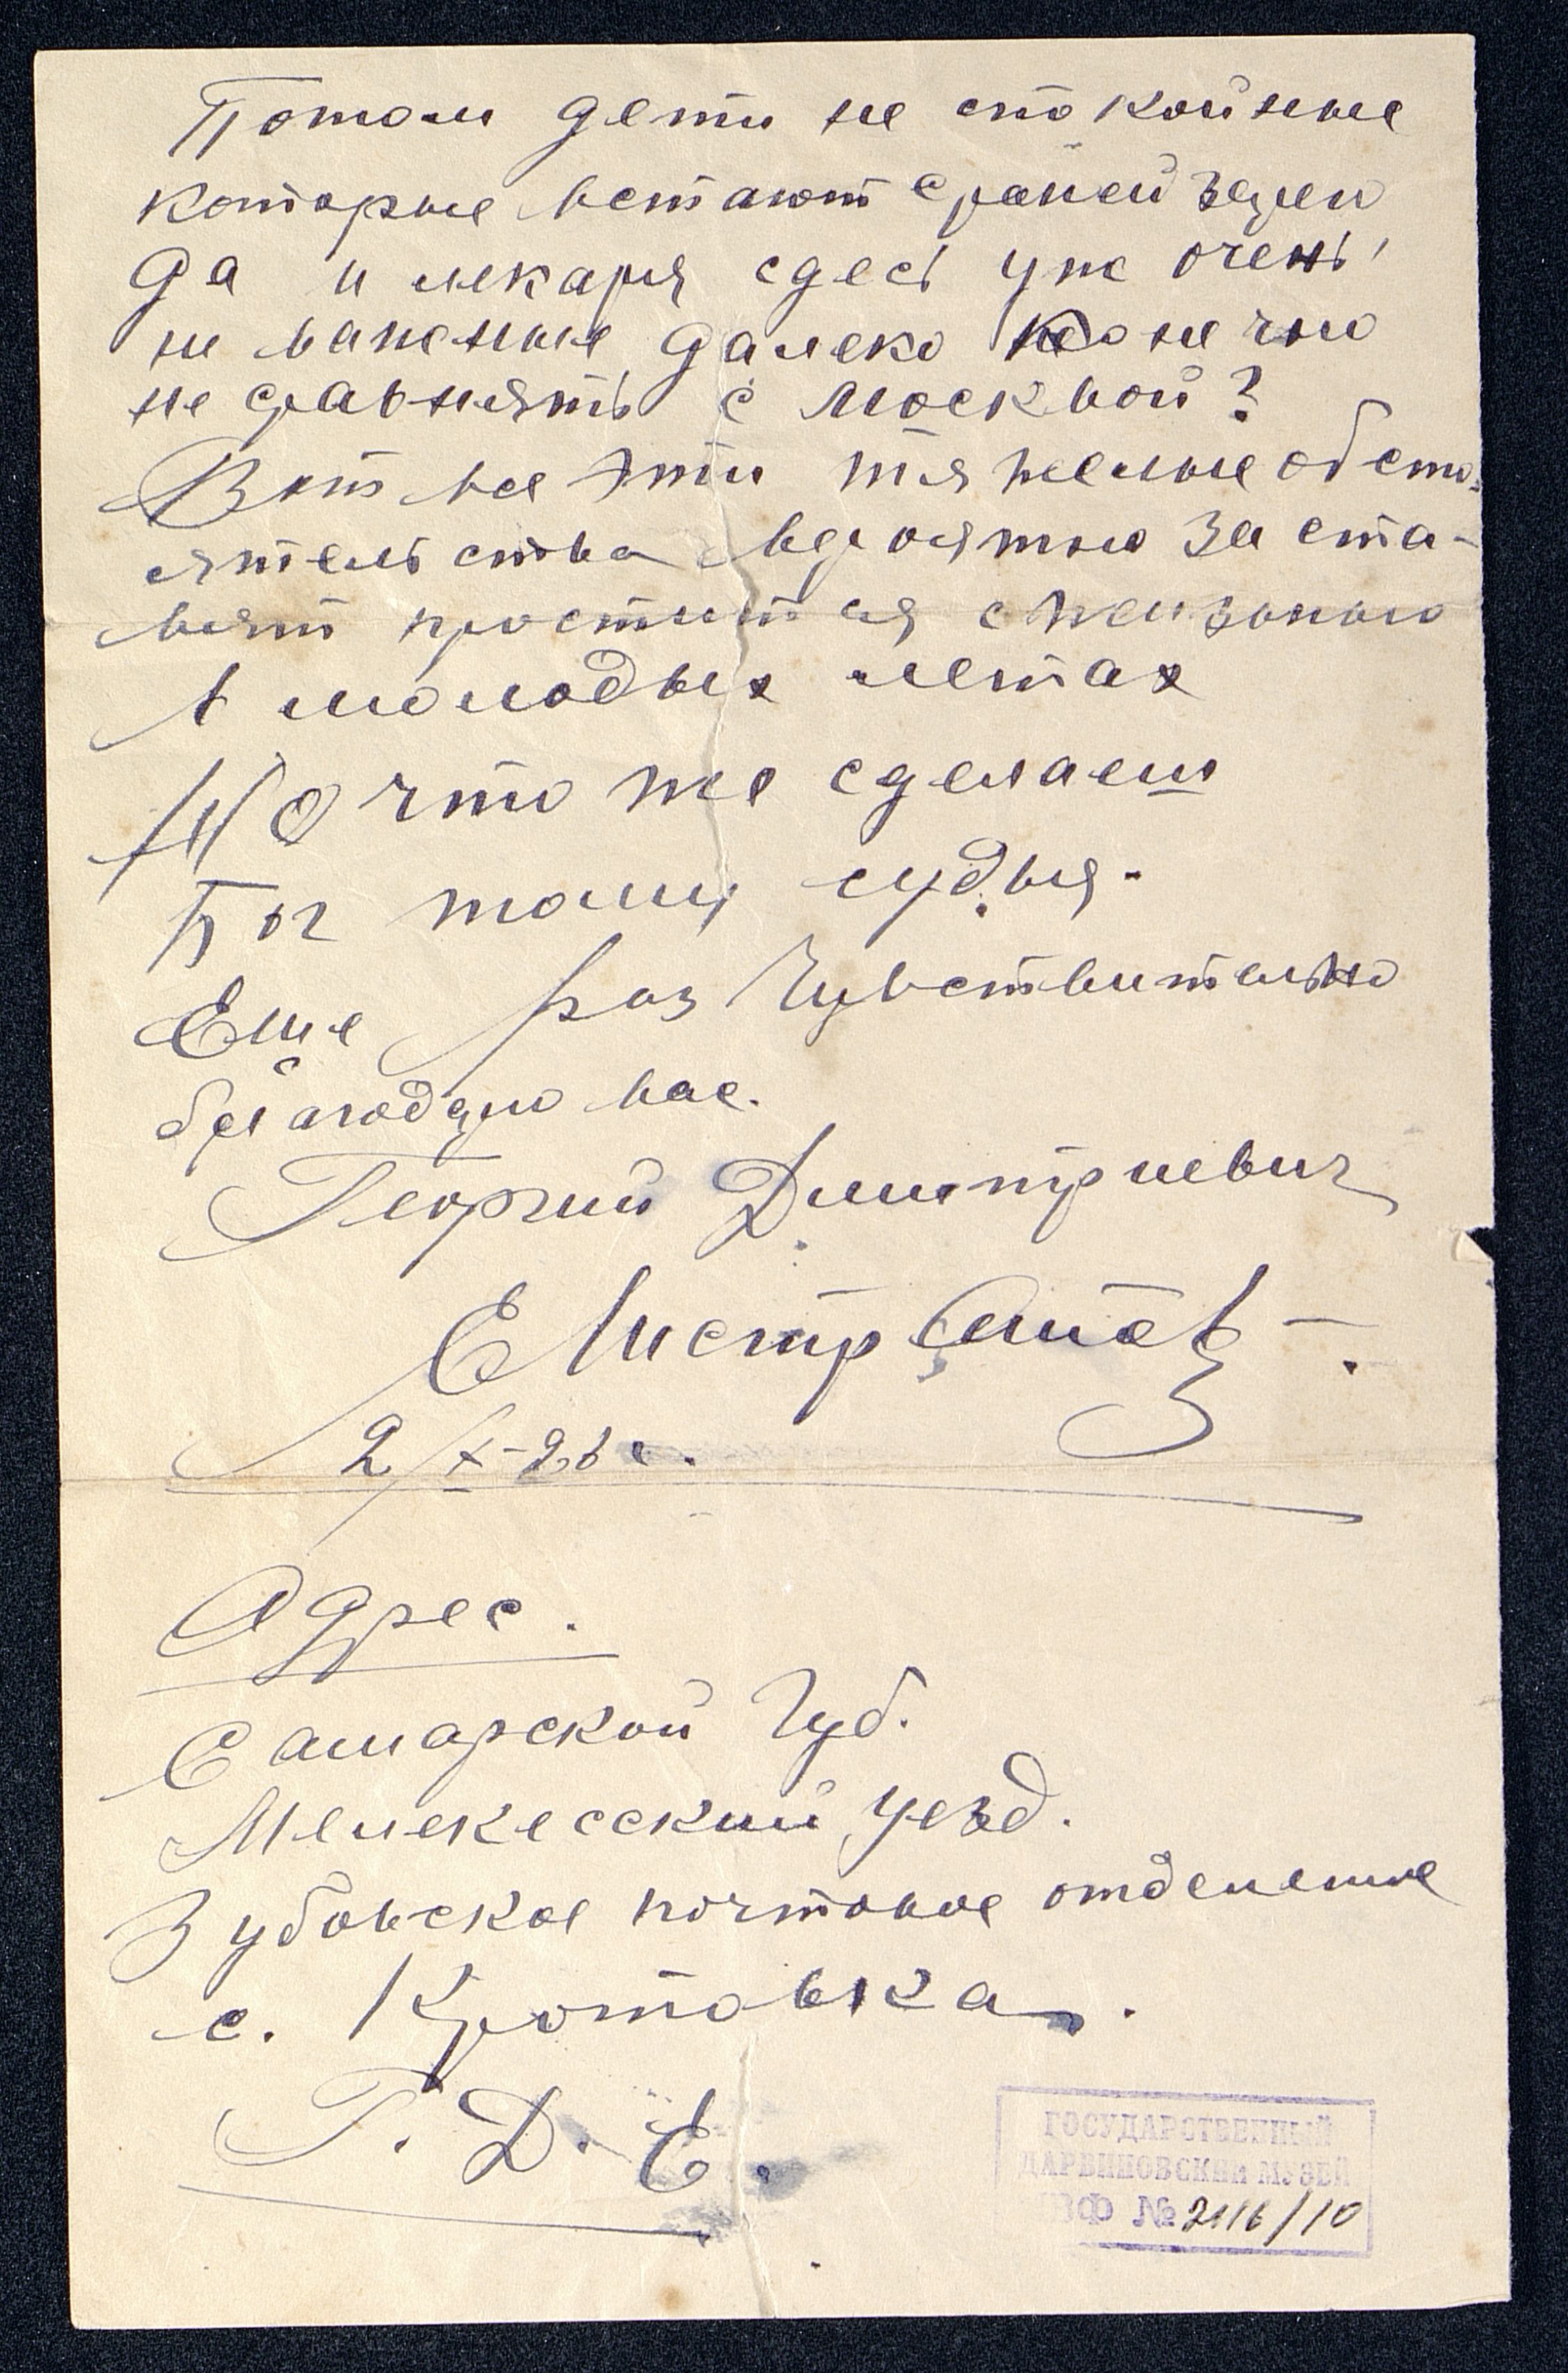 Потом дети не спокойные
которые встают с раней зарей
да и лекаря сдесь уж очень
не важные, далеко конечно
не сравнять с Москвой?
Вот все эти тяжелые обсто-
ятельства вероятно заста-
вят простится с жизонью
в молодых летах
Но что же сделаеш
Бог тому судья.
Еше раз Чувствительно
благодарю вас.
Георгий Димитриевич
Елистратов
2/X-26 г.
Адрес.
Самарской Губ.
Мелекесский уезд.
Зубовское почтовое отделение
с. Кротовка.
Г. Д. Е.
ГОСУДАРСТВЕННЫЙ
ДАРВИНОВСКИЙ МУЗЕЙ
ВФ № 2116/10